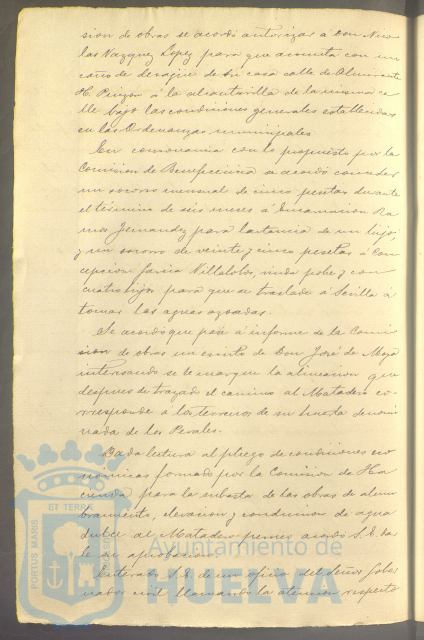 sion de obras se acordó autorizar á Don Nico
las Vazquez Lopez para que acometa con un
caño de desagüe de su casa calle de Almirante
H. Pinzon á la alcantarilla de la misma ca
lle bajo las condiciones generales establecidas
en las Ordenanzas municipales
En consonancia con lo propuesto por la
Comision de Beneficencia se acordó conceder
un socorro mensual de cinco pesetas durante
el término de seis meses á Encarnacion Ra
mos Fernandez para lactancia de un hijo,
y un socorro de veinte y cinco pesetas á Con
cepcion Garcia Villalobos, viuda pobre y con
cuatro hijos para que se traslade á Sevilla á
tomar las aguas azoadas.
Se acordó que pase á informe de la Comi
sion de obras un escrito de Don José de Mora
interesando se le marque la alineacion que
despues de trazado el camino al Matadero co-
rresponde á los terrenos de su huerta denomi
nada de los Perales.
Dada lectura al pliego de condiciones eco
nómicas formado por la Comision de Ha
cienda para la subasta de las obras de alum
bramiento, elevacion y conduccion de agua
dulce al Matadero acordó S.E. dar
le su aprobacion.
Enterado S.E. de un oficio del Señor Gober
nador civil llamando la atencion respecto
PORTUS MARIS ET TERRE
Ayuntamiento de
HUELVA